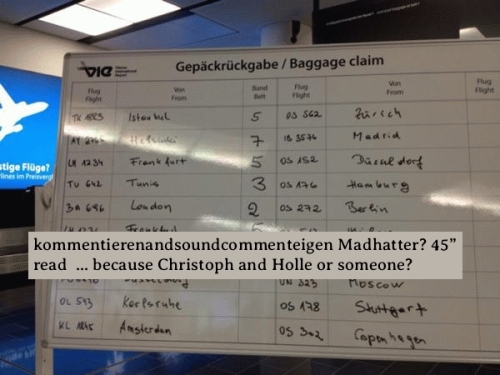 VIE Vienna International Airport
Gepäckrückgabe / Baggage claim
Flug Flight Von From Band Belt Flug Flight Von From
TK 1883 Istanbul 5 OS 562 Zürich
Helsinki 7 IB 3576 Madrid
LH 1234 Frankfurt 5 OS 152 Düsseldorf
TU 642 Tunis 3 OS 176 Hamburg
BA 696 London 2 OS 272 Berlin
Frankfurt 5 Milano
stige Flüge?
rlines im Preisvergl
kommentierenandsoundcommenteigen Madhatter? 45”
read ... because Christoph and Holle or someone?
Düsseldorf UN 323 Moscow
OL 543 Karlsruhe OS 178 Stuttgart
KL 1845 Amsterdam OS 302 Copenhagen